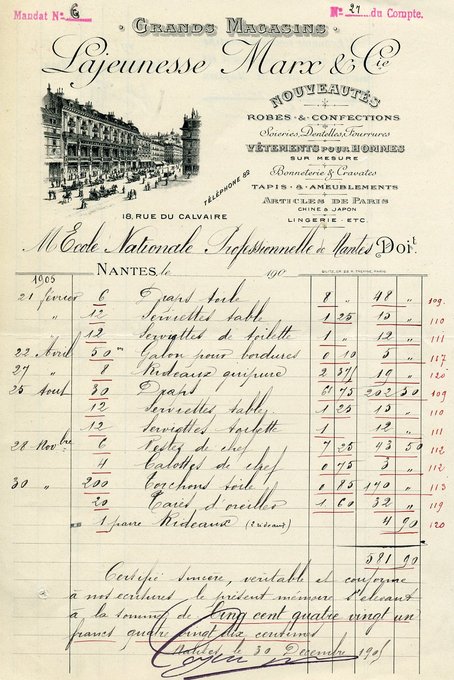 Mandat N° 6
N° 27 du Compte.
GRANDS MAGASINS
Lajeunesse Marx & Cie
NOUVEAUTÉS
ROBES & CONFECTIONS
Soieries, Dentelles, Fourrures
VÊTEMENTS POUR HOMMES
SUR MESURE
Bonneterie & Cravates
TAPIS & AMEUBLEMENTS
ARTICLES DE PARIS
CHINE & JAPON
LINGERIE - ETC.
TÉLÉPHONE 89
18, RUE DU CALVAIRE
M Ecole Nationale Professionnelle de Nantes Doit.
NANTES, le 190
1905
21 février 6 Draps toile 8 " 48 " 109
" 12 Serviettes table 1 25 15 " 110
12 Serviettes de toilette 1 " 12 " 111
22 Avril 50 m Galon pour bordures 0 10 5 " 117
27 " 8 Rideaux guipure 2 37 19 " 120
25 Aout 30 Draps 6 75 202 50 109
12 Serviettes table 1 25 15 " 110
12 Serviettes toilette 1 12 " 111
28 Novbre 6 Vestes de chef 7 25 43 50 112
4 Calottes de chef 0 75 3 " 112
30 " 200 Torchons toile 0 85 170 " 113
20 Taies d'oreiller 1 60 32 " 119
1 paire Rideaux (2 rideaux) 4 90 120
581 90
Certifié sincère, véritable et conforme
à nos ecritures le présent mémoire s'élevant
à la somme de Cinq cent quatre vingt un
francs quatre vingt dix centimes
Nantes le 30 Décembre 1905